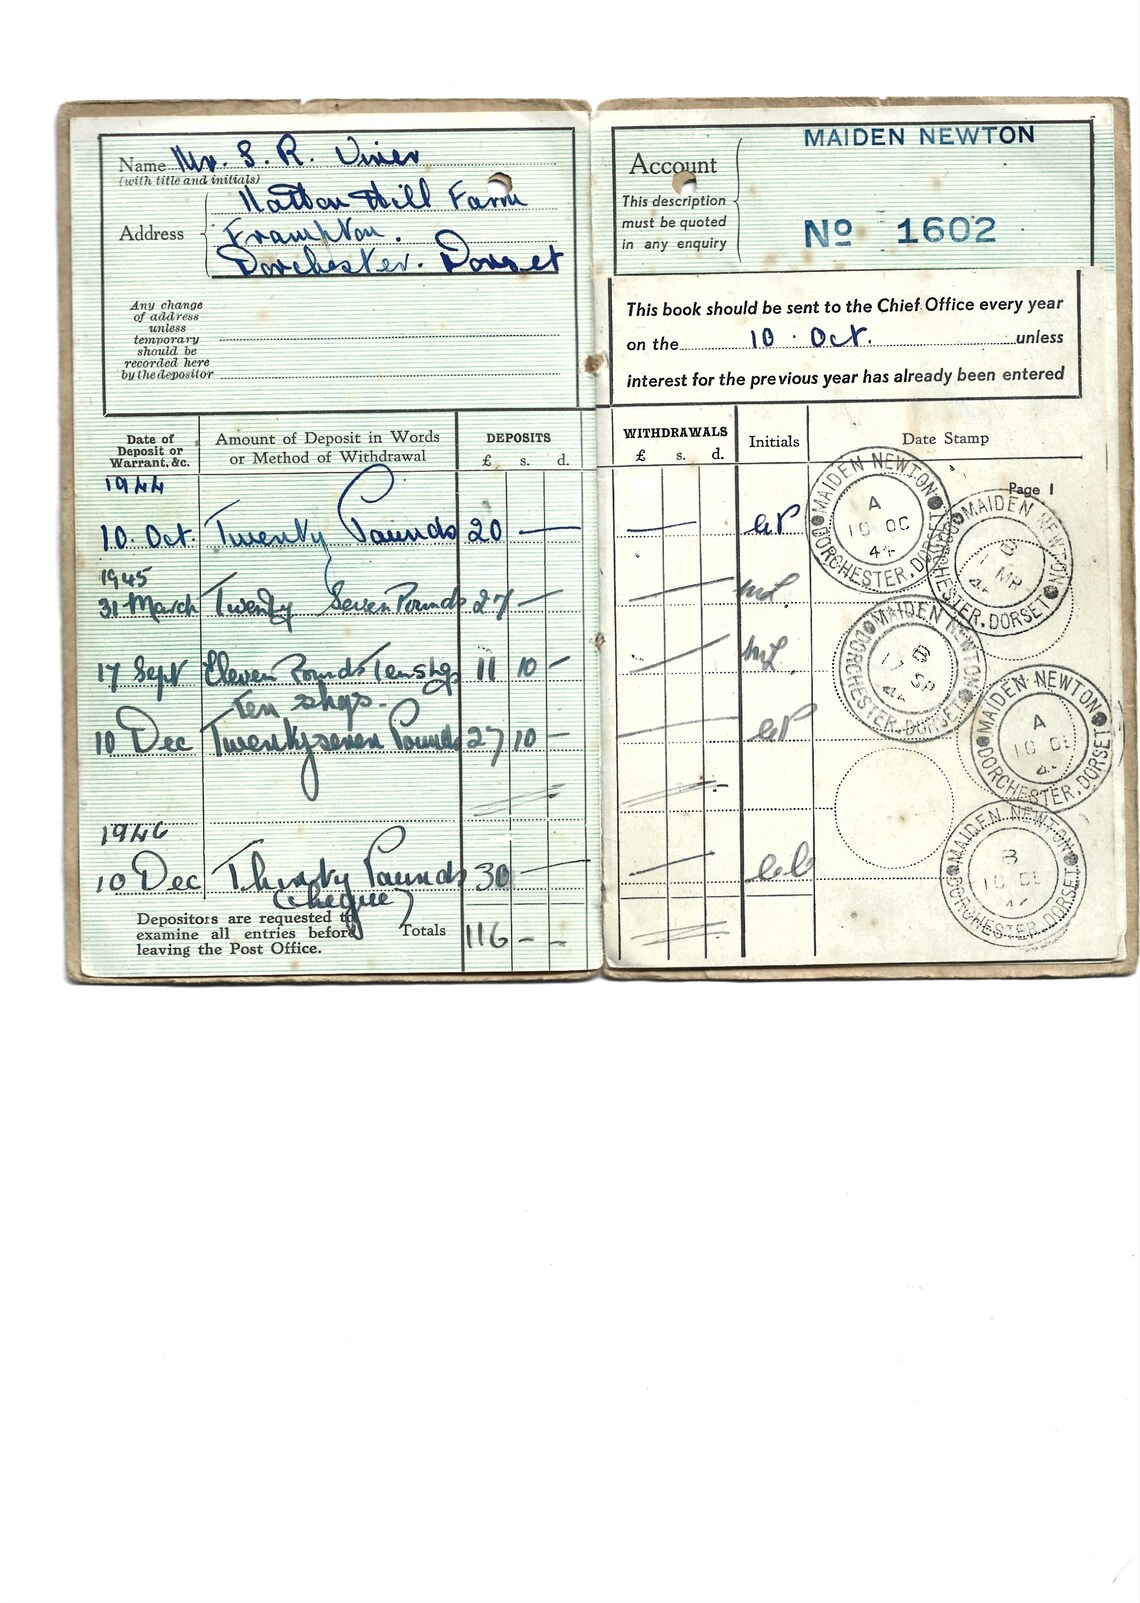 Name Mr. S. R. Viner
(with title and initials)
Address Hatton Hill Farm
Frampton.
Dorchester. Dorset
Any change
of address
unless
temporary
should be
recorded here
by the depositor
Date of
Deposit or
Warrant, &c.
Amount of Deposit in Words
or Method of Withdrawal
DEPOSITS
£ s. d.
1944
10. Oct. Twenty Pounds 20 —
1945
31 March Twenty Seven Pounds 27 —
17 Sept Eleven Pounds Ten shgs 11 10 —
Ten shgs.
10 Dec Twenty seven Pounds 27 10 —
1946
10 Dec Thirty Pounds 30 —
(cheque)
Depositors are requested to
examine all entries before
leaving the Post Office.
Totals 116 - -
MAIDEN NEWTON
Account
This description
must be quoted
in any enquiry
No 1602
This book should be sent to the Chief Office every year
on the 10 . Oct. unless
interest for the previous year has already been entered
WITHDRAWALS
£ s. d.
Initials
Date Stamp
Page 1
MAIDEN NEWTON
A
10 OC
44
DORCHESTER, DORSET
MAIDEN NEWTON
B
MR
DORCHESTER, DORSET
MAIDEN NEWTON
B
17 SP
DORCHESTER, DORSET
MAIDEN NEWTON
A
10 DE
DORCHESTER, DORSET
MAIDEN NEWTON
B
10 DE
DORCHESTER, DORSET